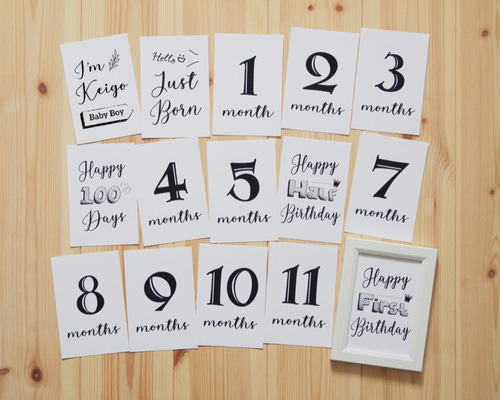 I'm
Keigo
Baby Boy
Hello
Just
Born
1
month
2
months
3
months
Happy
100
Days
4
months
5
months
Happy
Half
Birthday
7
months
8
months
9
months
10
months
11
months
Happy
First
Birthday